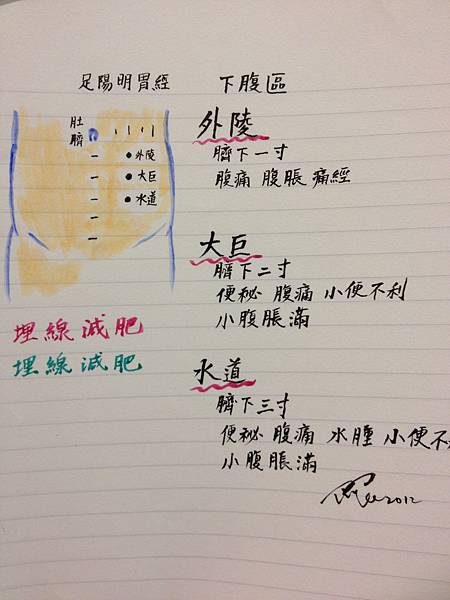 足陽明胃經 下腹區
肚臍
外陵
大巨
水道
外陵
臍下一寸
腹痛 腹脹 痛經
大巨
臍下二寸
便秘 腹痛 小便不利
小腹脹滿
埋線減肥
埋線減肥
水道
臍下三寸
便秘 腹痛 水腫 小便不
小腹脹滿
2012